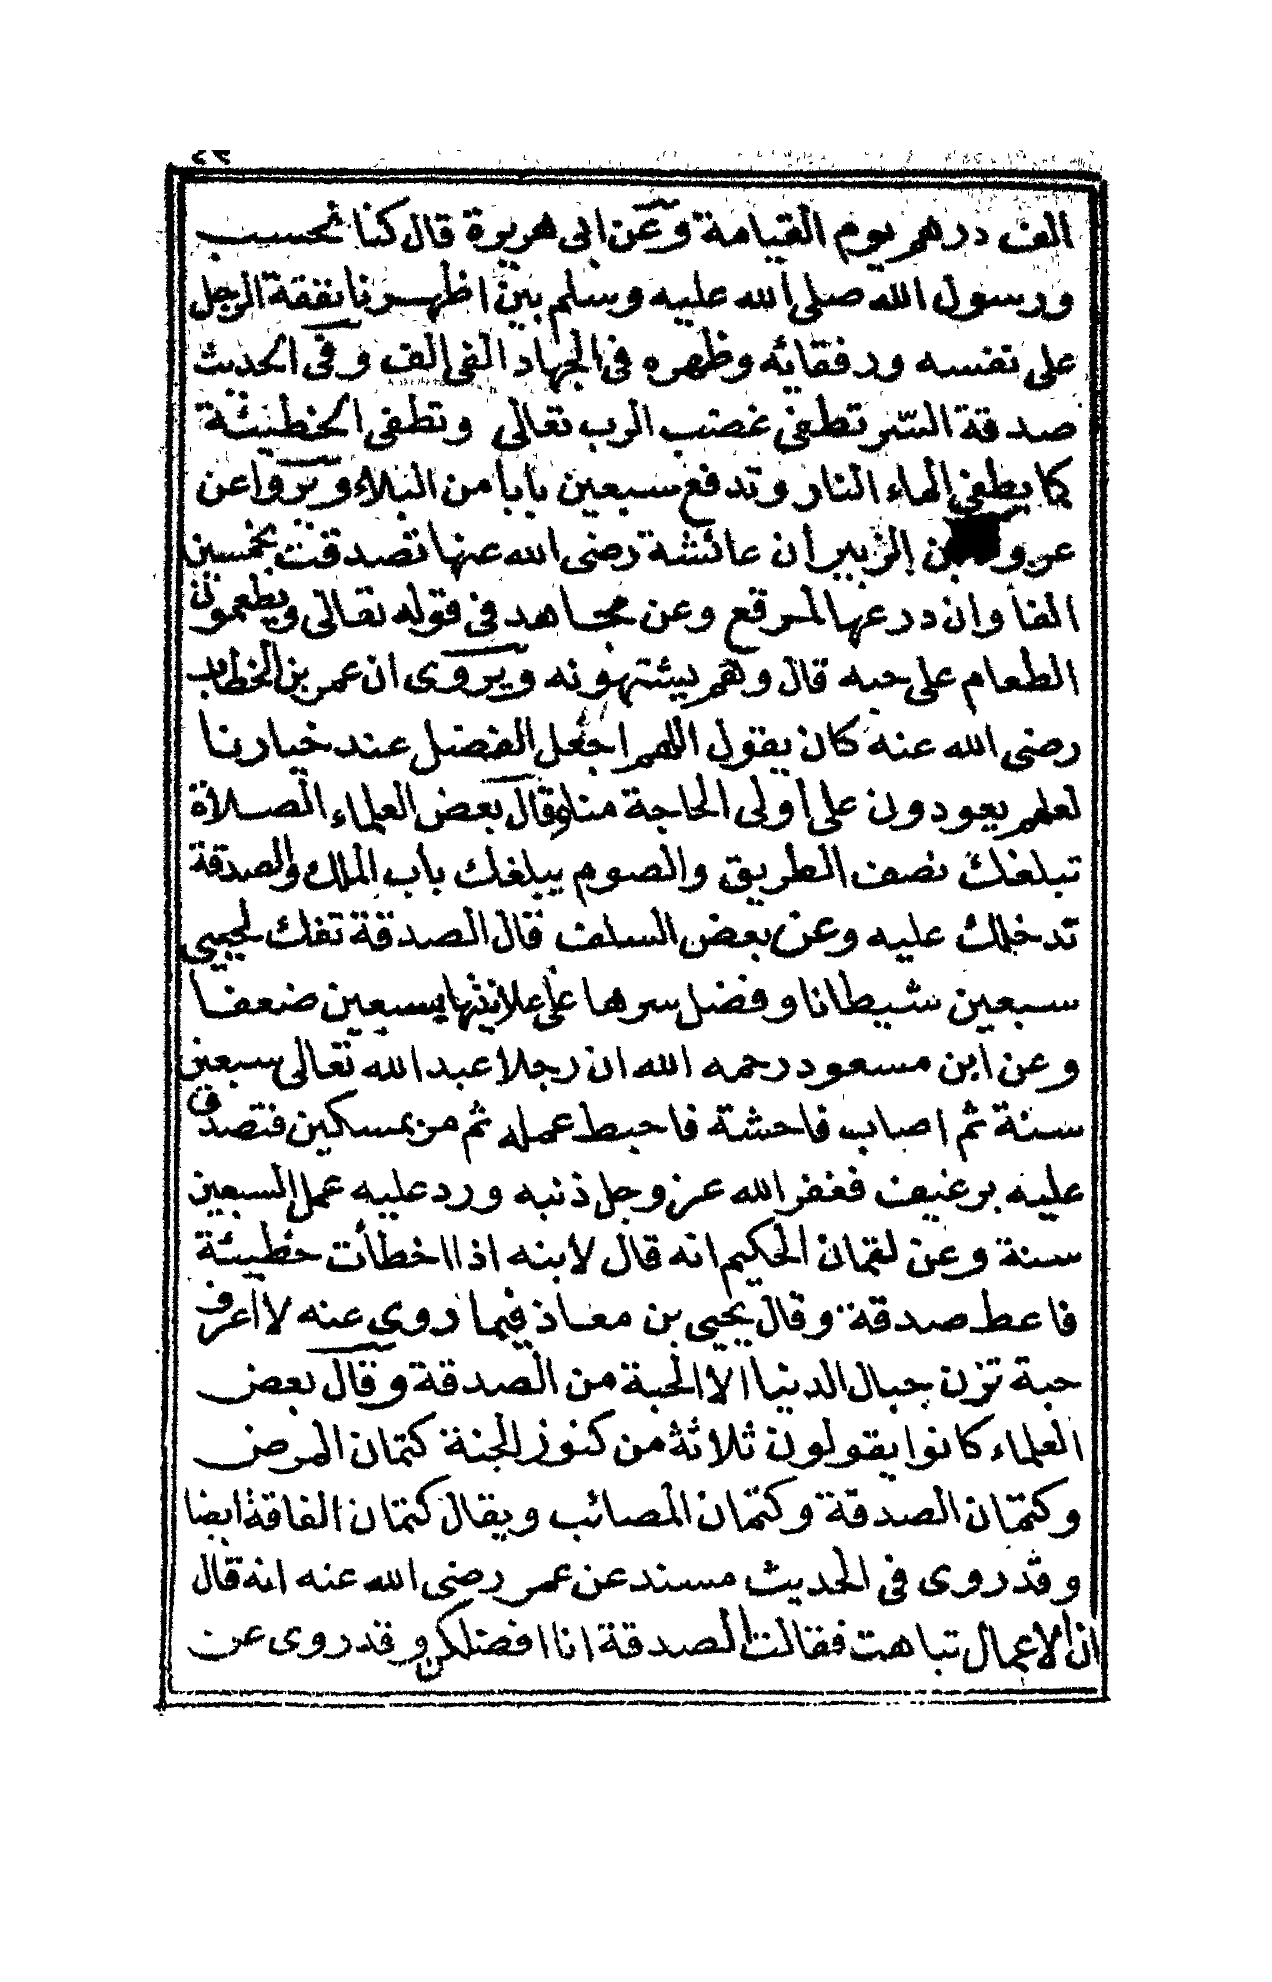 الف درهم يوم القيامة وعن ابى هريرة قال كنا نحسب
ورسول الله صلى الله عليه وسلم بين اظهرنا نفقة الرجل
على نفسه ورفقائه وظهره فى الجهاد الفى الف وفى الحديث
صدقة السّر تطفى غضب الرب تعالى وتطفى الخطيئة
كما يطفى الماء النار وتدفع سبعين بابا من البلاء ويروا عن
عروة بن الزبير أن عائشة رضى الله عنها تصدقت بخمسين
الفا وان درعها لمرقع وعن مجاهد فى قوله تعالى ويطعمون
الطعام على حبه قال وهم يشتهونه ويروى ان عمر بن الخطاب
رضى الله عنه كان يقول اللهم اجعل الفضل عند خيارنا
لعلهم يعودون على أولى الحاجة منا وقال بعض العلماء الصلاة
تبلغك نصف الطريق والصوم يبلغك باب الملك والصدقة
تدخلك عليه وعن بعض السلف قال الصدقة تفك لحيى
سبعين شيطانا وفضل سرها على علانيتها بسبعين ضعفا
وعن ابن مسعود رحمه الله ان رجلا عبد الله تعالى سبعين
سنة ثم اصاب فاحشة فاحبط عمله ثم مر بمسكين فتصدق
عليه برغيف فغفر الله عز وجل ذنبه ورد عليه عمل السبعين
سنة وعن لقمان الحكيم انه قال لأبنه اذا اخطأت خطيئة
فاعط صدقة وقال يحيى بن معاذ فيما روى عنه لا أعرف
حبة تزن جبال الدنيا الا الحبة من الصدقة وقال بعض
العلماء كانوا يقولون ثلاثة من كنوز الجنة كتمان المرض
وكتمان الصدقة وكتمان المصائب ويقال كتمان الفاقة ايضا
وقد روى فى الحديث مسند عن عمر رضى الله عنه انه قال
ان الاعمال تباهت فقالت الصدقة انا افضلكن وقد روى عن